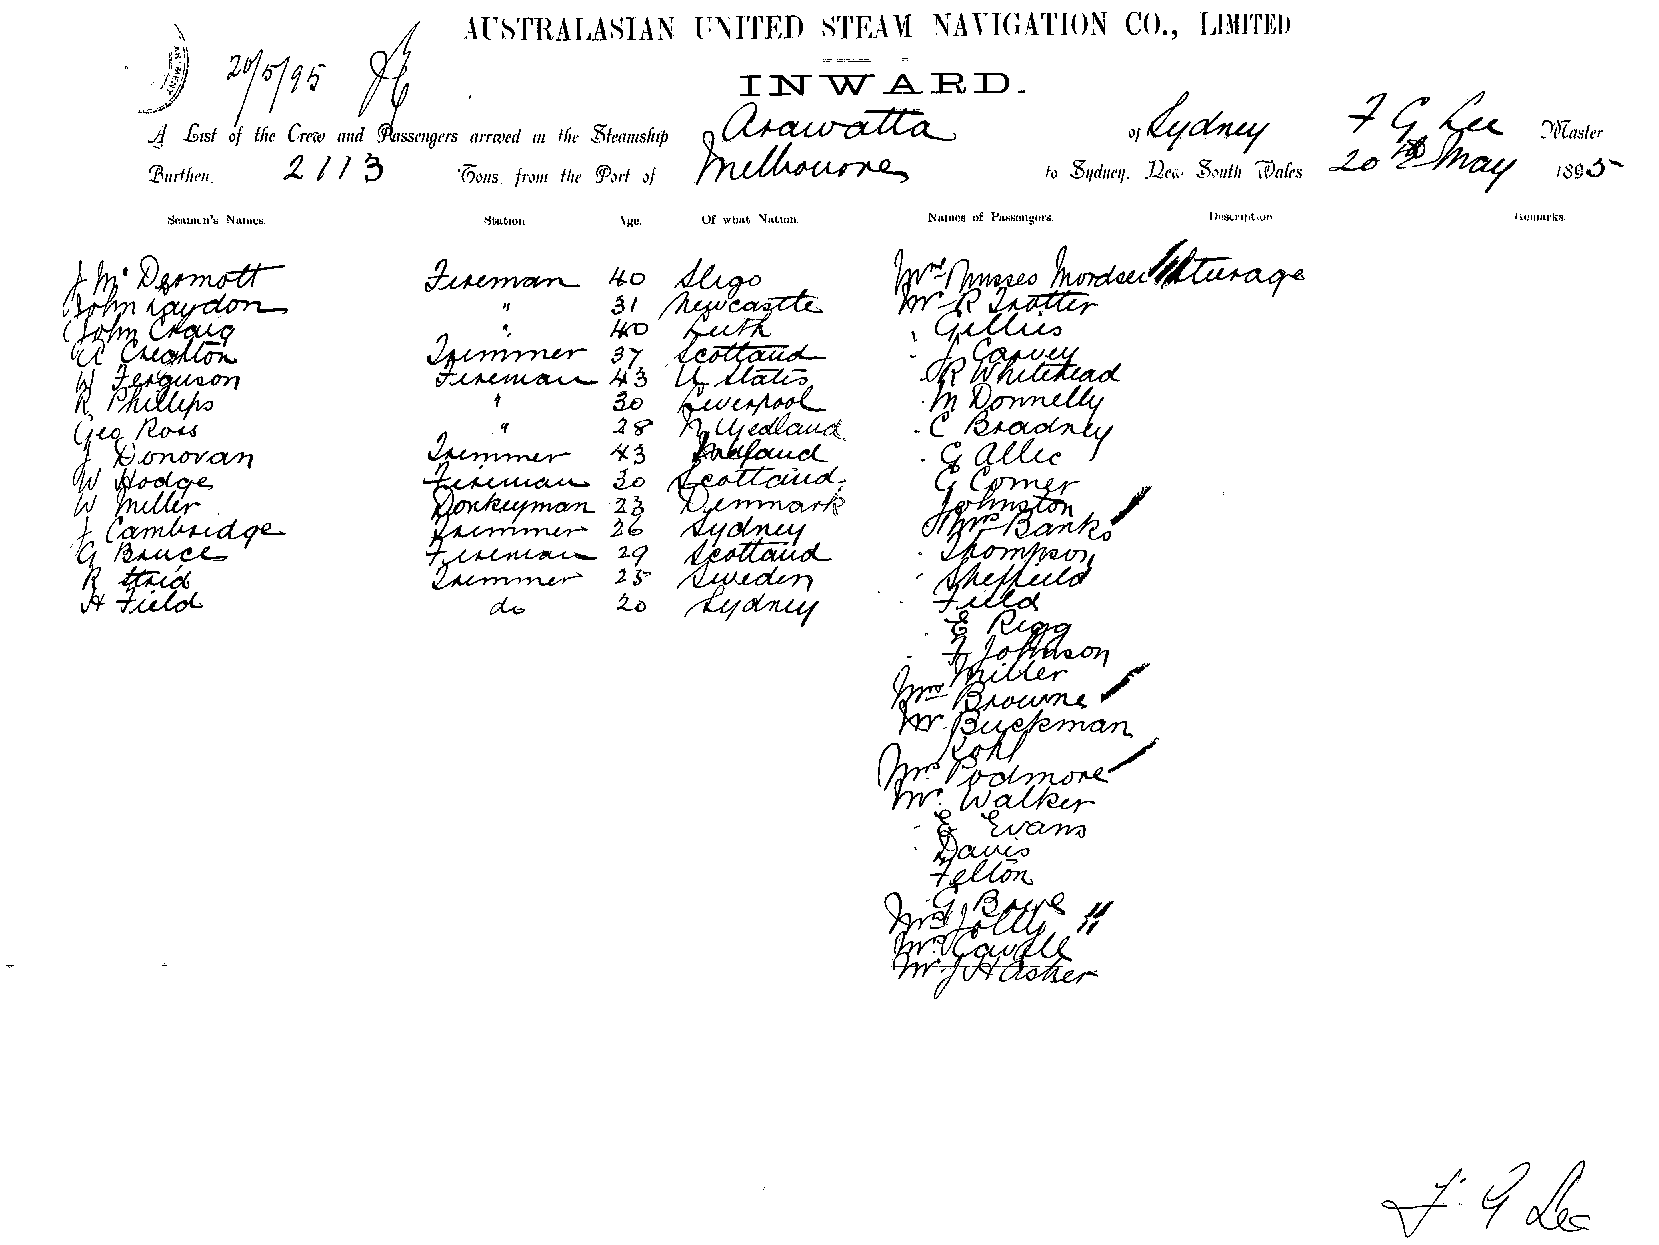 AUSTRALASIAN UNITED STEAM NAVIGATION CO., LIMITED
20/5/95
INWARD.
A List of the Crew and Passengers arrived in the Steamship Arawatta of Sydney F G Lee Master
Burthen 2113 Tons, from the Port of Melbourne to Sydney, New South Wales 20th May 1895
Seamen's Names. Station Age. Of what Nation. Names of Passengers. Description Remarks.
J McDermott Fireman 40 Sligo Mrs Misses sturage
John Laydon " 31 Newcastle Mr R Trotter
John Craig " 40 Leith " Gillies
A Creighton Trimmer 37 Scotland " J Garvey
W Ferguson Fireman 43 U States R Whitehead
R Phillips " 30 Liverpool " M Donnelly
Geo Ross " 28 N Zedland " C Bradney
J Donovan Trimmer 43 " G Allie
W Hodge Fireman 30 Scotland G Comer
W Miller Donkeyman 23 Denmark Johnston
J Cambridge Trimmer 26 Sydney Mrs Banks
G Bruce Fireman 29 Scotland " Thompson
R Trimmer 25 Sweden " Sheffield
H Field do 20 Sydney " Field
" E Rigg
" F Johnson
Miller
Mrs Browne
Mr Buckman
Kohl
Mrs Podmore
Mr. Walker
" E Evans
" Davis
Felton
G Bowe
Mrs Jolly
Mr Cavell
Mr J H Asher
F. G Lee